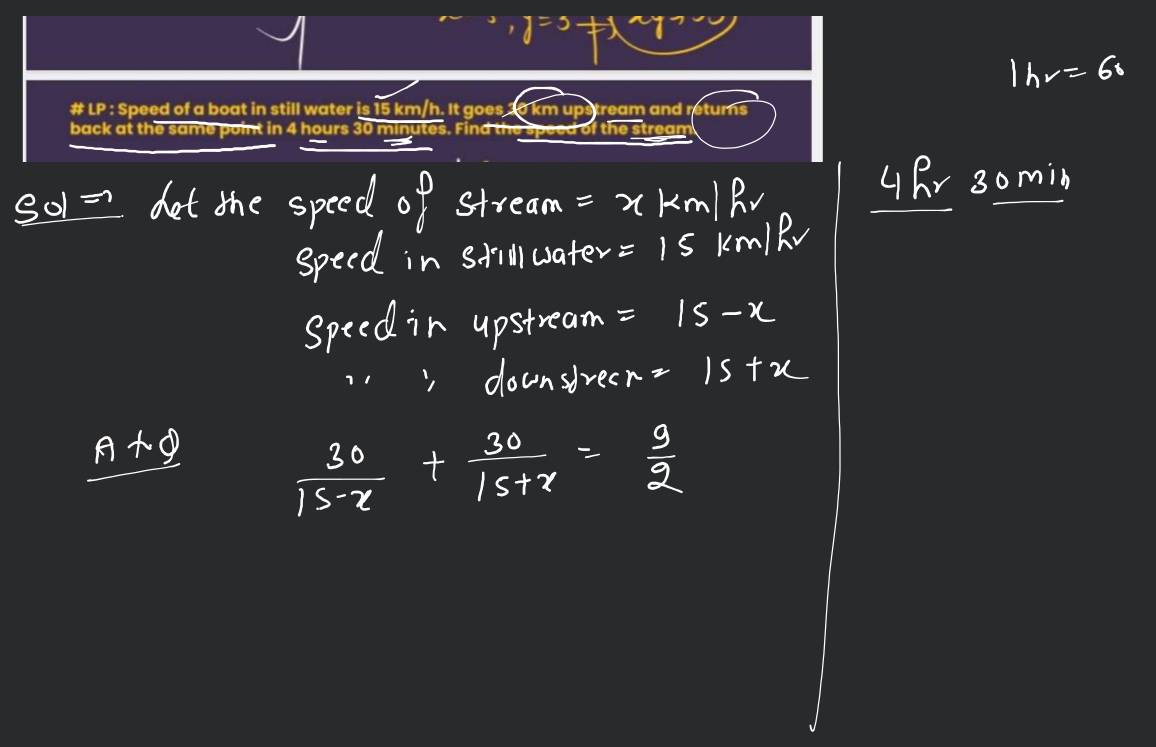 , y=3
1hr = 60
# LP : Speed of a boat in still water is 15 km/h. It goes 30 km upstream and returns
back at the same point in 4 hours 30 minutes. Find the speed of the stream.
4 hr 30 min
Sol ⇒ Let the speed of stream = x km/hr
Speed in still water = 15 km/hr
Speed in upstream = 15 - x
,, ,, downstream = 15 + x
A t Q 30/(15-x) + 30/(15+x) = 9/2